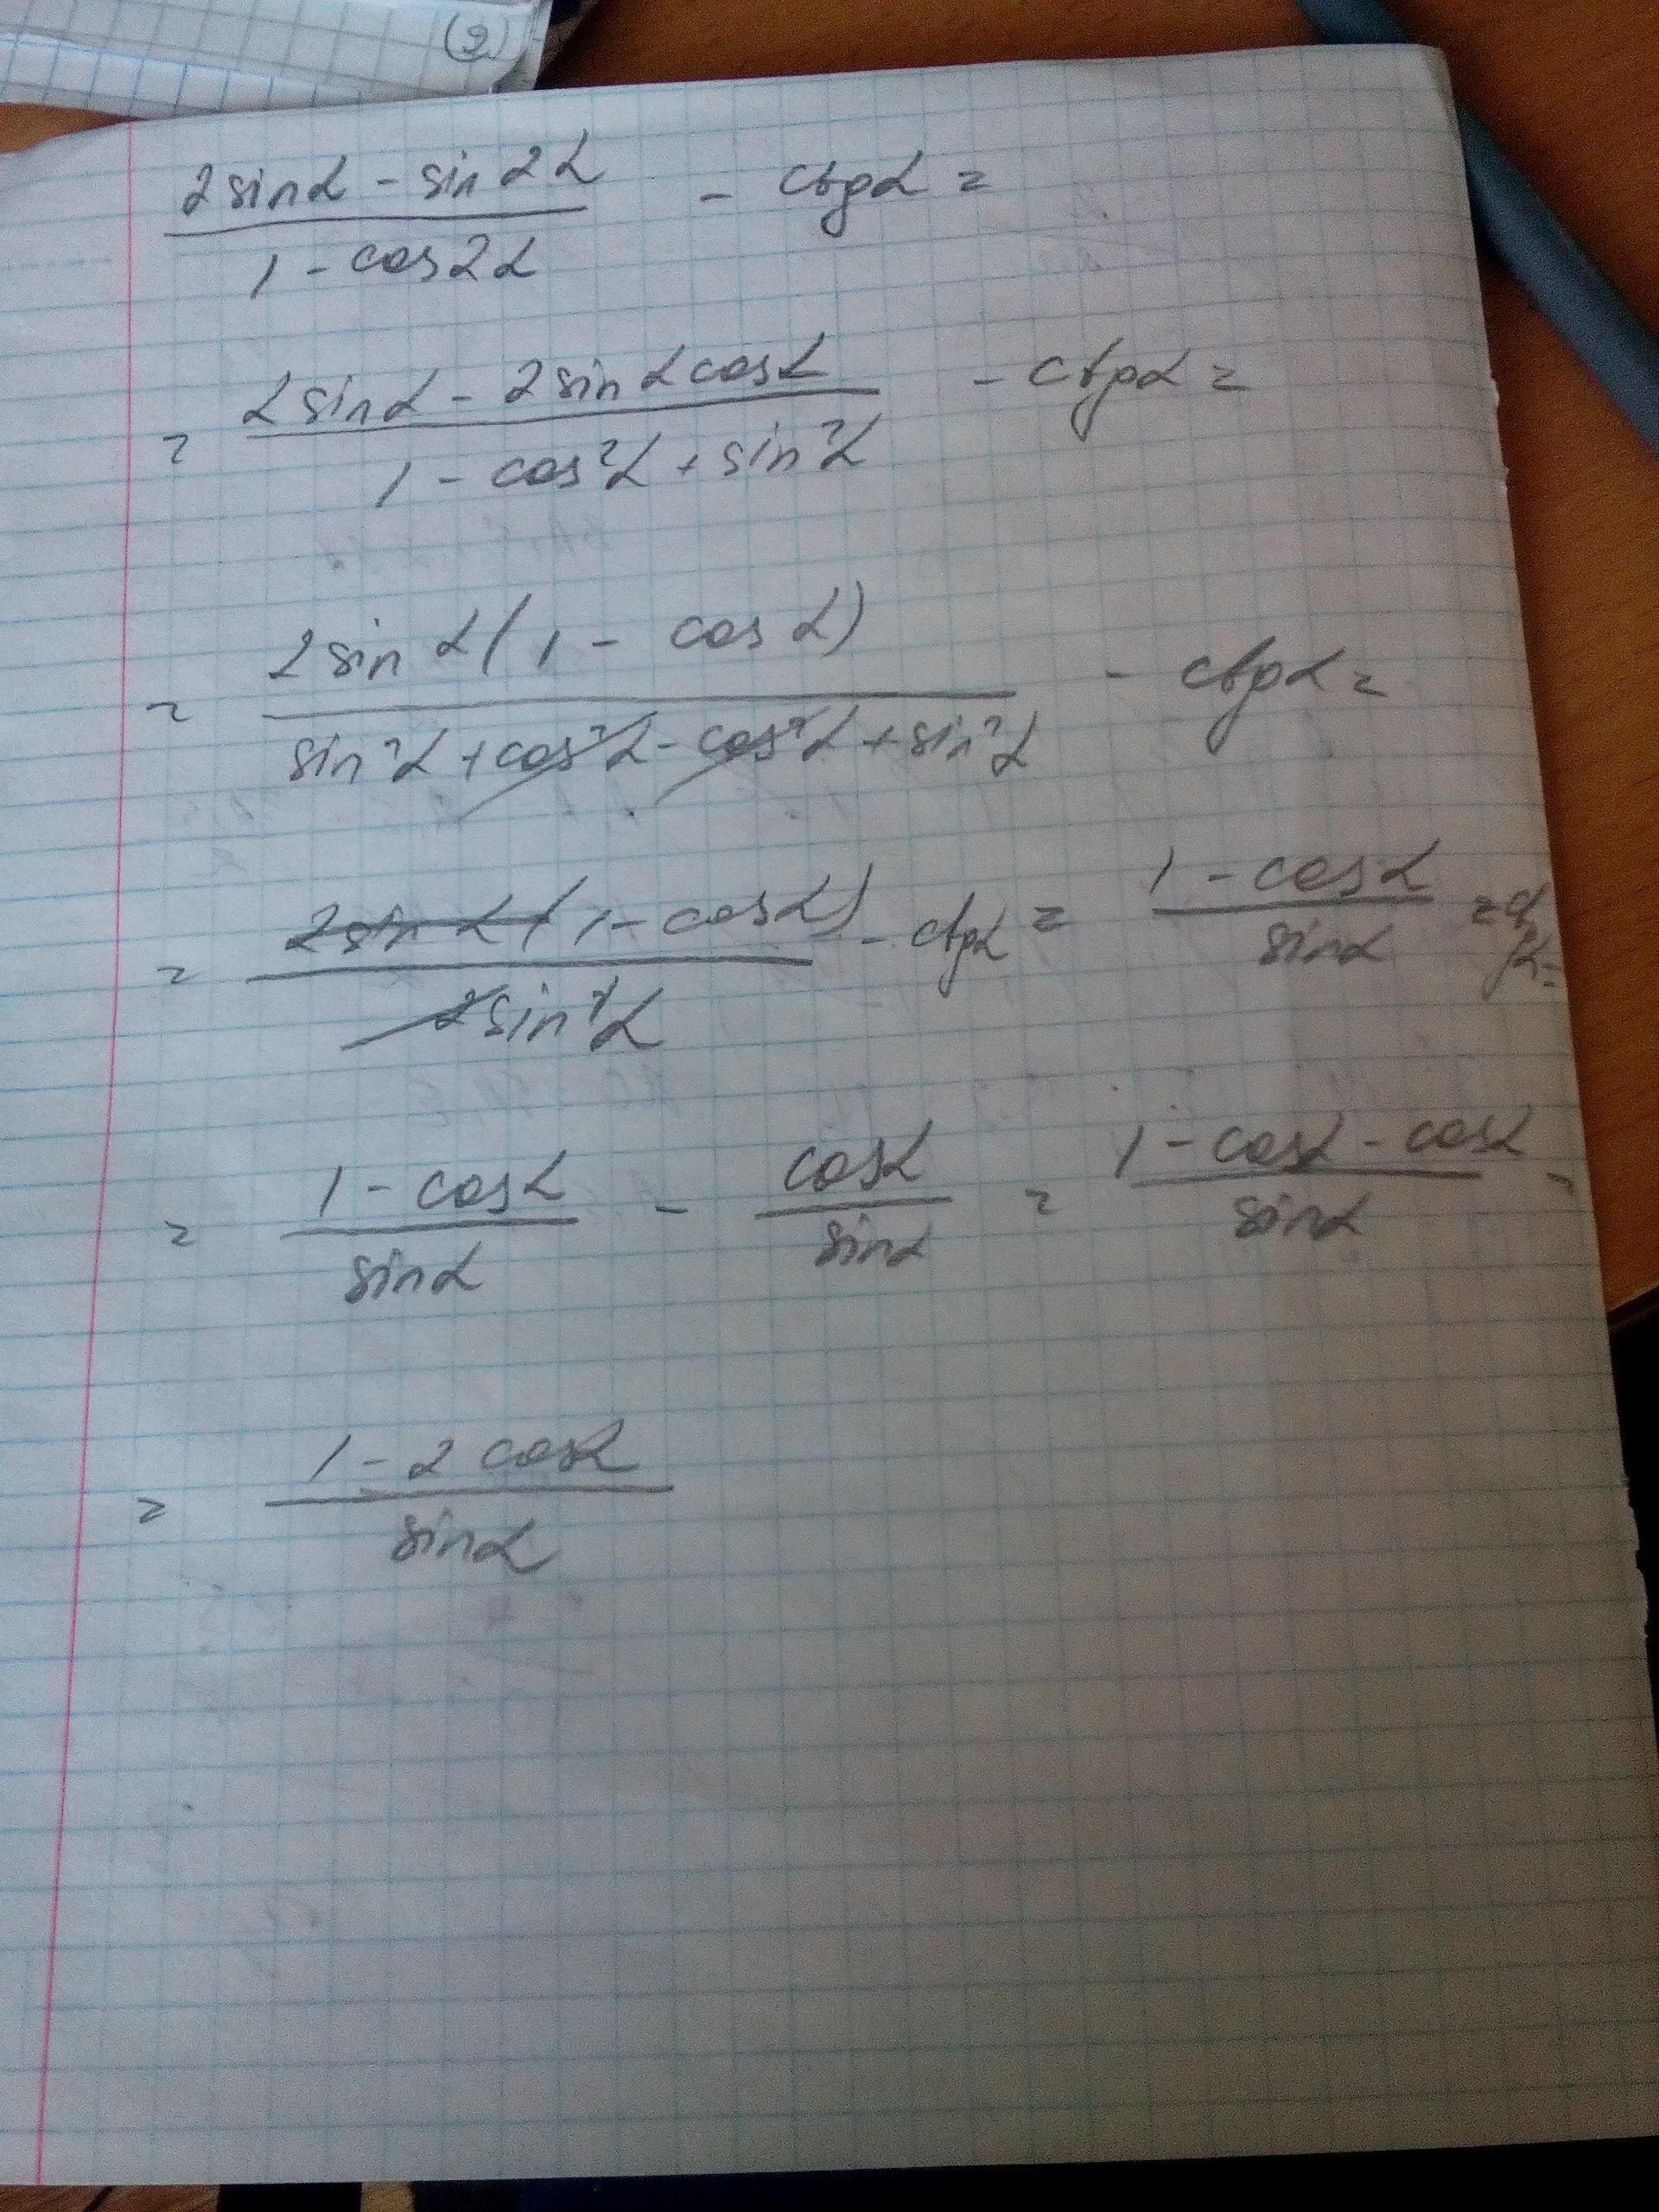 (9)
2sinα - sin2α / 1 - cos2α - ctgα =
= 2sinα - 2sinαcosα / 1 - cos²α + sin²α - ctgα =
= 2sinα(1 - cosα) / sin²α + cos²α - cos²α + sin²α - ctgα =
= 2sinα(1 - cosα) / 2sin²α - ctgα = 1 - cosα / sinα = ctgα =
= 1 - cosα / sinα - cosα / sinα = 1 - cosα - cosα / sinα =
= 1 - 2cosα / sinα